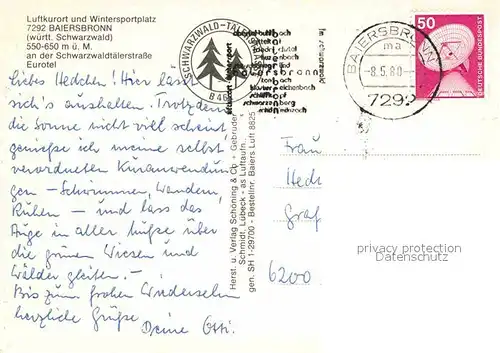 Luftkurort und Wintersportplatz
7292 BAIERSBRONN
(württ. Schwarzwald)
550-650 m ü. M.
an der Schwarzwaldtälerstraße
Eurotel
Liebes Hedchen! Hier lässt
sich's aushalten. Trotzdem
die Sonne nicht viel scheint,
genieße ich meine selbst
verordneten Kuranwendun
gen – Schwimmen, Wandern,
Ruhen – und lass das
Auge in aller Muße über
die grünen Wiesen und
Wälder gleiten. –
Bis zum frohen Wiedersehn
herzliche Grüße
Deine Otti.
Herst. u. Verlag Schöning & Co + Gebrüder
Schmidt, Lübeck - as Luftaufn.
gen. SH 1-29700 - Bestellnr. Baiers Luft 8825
SCHWARZWALD-TÄL
B 46
Luftkurort
Baiersbronn
klosterreichenbach
schwarzenberg
BAIERSBRONN
ma
-8.5.80
7292
50
DEUTSCHE BUNDESPOST
Frau
Hedi
Graf
6200
privacy protection
Datenschutz